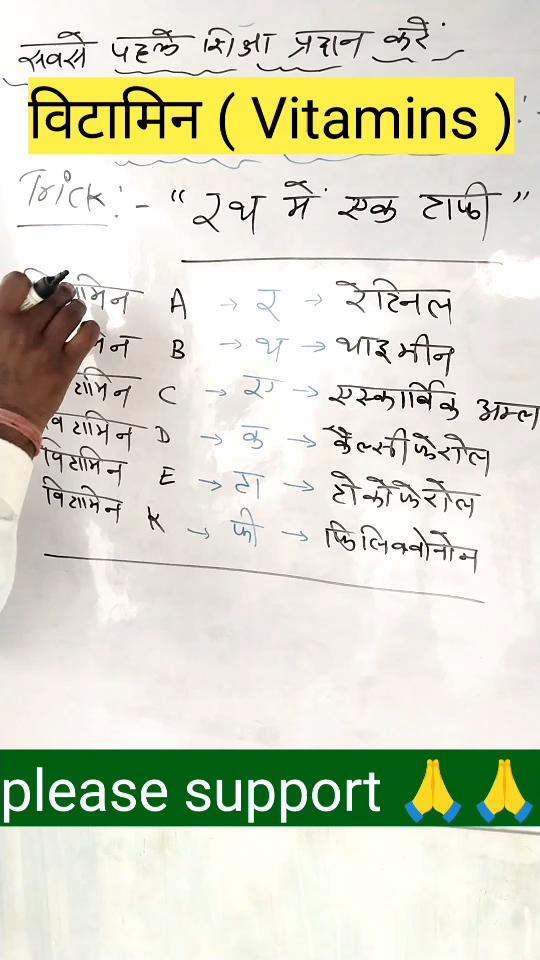 सबसे पहले शिक्षा प्रदान करें
विटामिन ( Vitamins )
Trick :- “ रथ में एक टाफी ”
विटामिन A → र → रेटिनल
मिन B → थ → थाइमीन
टामिन C → ए → एस्कार्विक अम्ल
विटामिन D → क → कैल्सीफेरोल
विटामिन E → टा → टोकोफेरोल
विटामिन K → फी → फिलिक्वोनोन
please support 🙏🙏